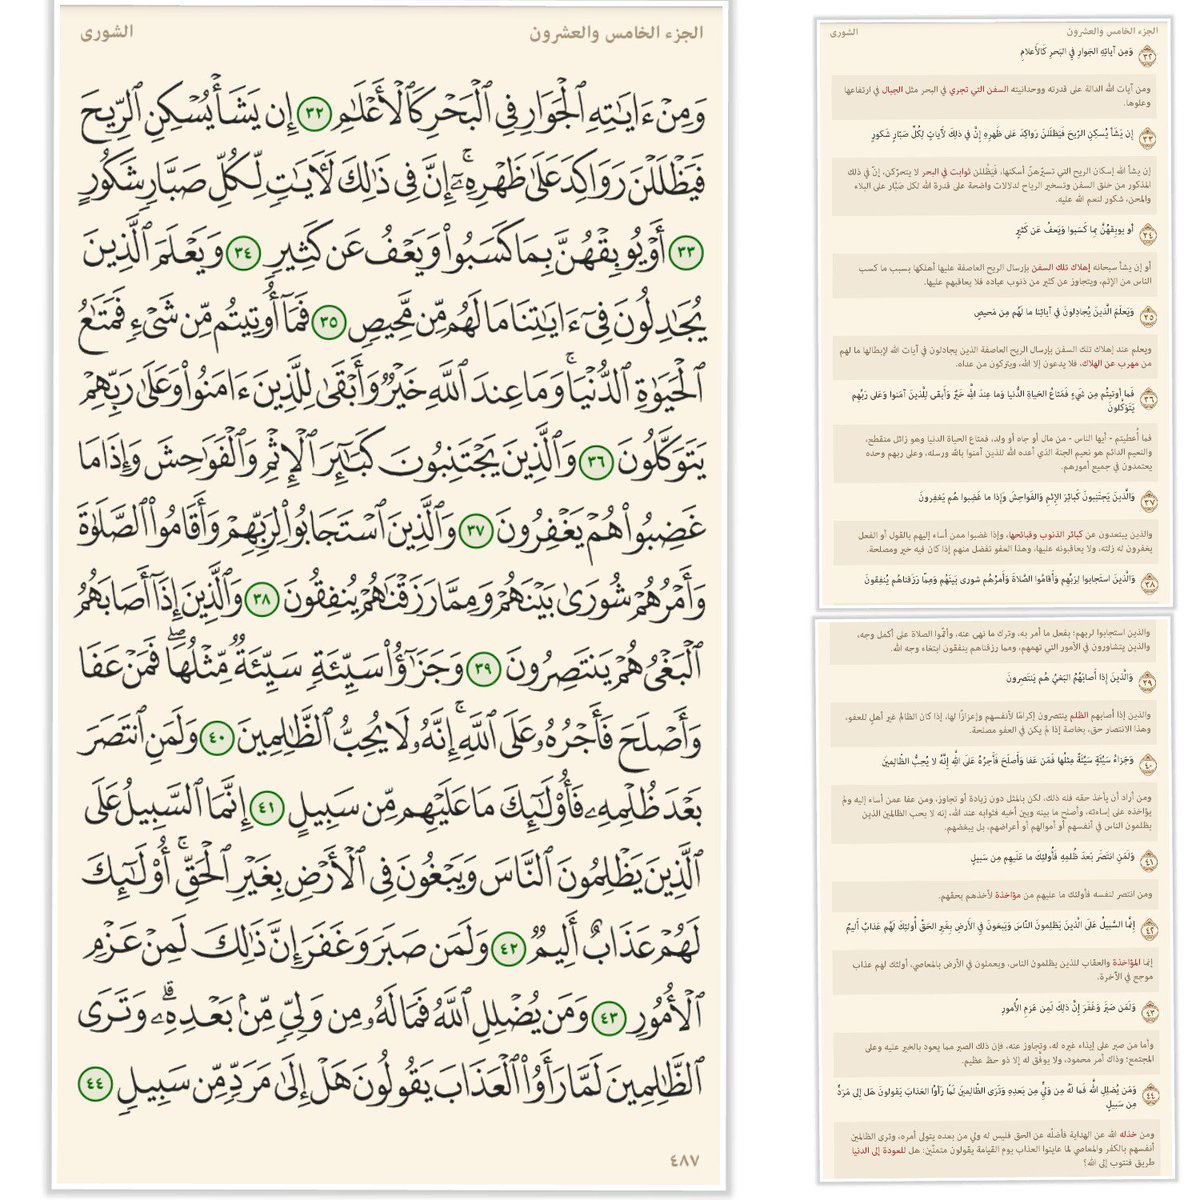 الجزء الخامس والعشرون
الشورى
وَمِنْ ءَايَٰتِهِ ٱلْجَوَارِ فِى ٱلْبَحْرِ كَٱلْأَعْلَٰمِ ٣٢ إِن يَشَأْ يُسْكِنِ ٱلرِّيحَ
فَيَظْلَلْنَ رَوَاكِدَ عَلَىٰ ظَهْرِهِۦٓ ۚ إِنَّ فِى ذَٰلِكَ لَءَايَٰتٍ لِّكُلِّ صَبَّارٍ شَكُورٍ
٣٣ أَوْ يُوبِقْهُنَّ بِمَا كَسَبُوا۟ وَيَعْفُ عَن كَثِيرٍ ٣٤ وَيَعْلَمَ ٱلَّذِينَ
يُجَٰدِلُونَ فِىٓ ءَايَٰتِنَا مَا لَهُم مِّن مَّحِيصٍ ٣٥ فَمَآ أُوتِيتُم مِّن شَىْءٍ فَمَتَٰعُ
ٱلْحَيَوٰةِ ٱلدُّنْيَا ۚ وَمَا عِندَ ٱللَّهِ خَيْرٌ وَأَبْقَىٰ لِلَّذِينَ ءَامَنُوا۟ وَعَلَىٰ رَبِّهِمْ
يَتَوَكَّلُونَ ٣٦ وَٱلَّذِينَ يَجْتَنِبُونَ كَبَٰٓئِرَ ٱلْإِثْمِ وَٱلْفَوَٰحِشَ وَإِذَا مَا
غَضِبُوا۟ هُمْ يَغْفِرُونَ ٣٧ وَٱلَّذِينَ ٱسْتَجَابُوا۟ لِرَبِّهِمْ وَأَقَامُوا۟ ٱلصَّلَوٰةَ
وَأَمْرُهُمْ شُورَىٰ بَيْنَهُمْ وَمِمَّا رَزَقْنَٰهُمْ يُنفِقُونَ ٣٨ وَٱلَّذِينَ إِذَآ أَصَابَهُمُ
ٱلْبَغْىُ هُمْ يَنتَصِرُونَ ٣٩ وَجَزَٰٓؤُا۟ سَيِّئَةٍ سَيِّئَةٌ مِّثْلُهَا ۖ فَمَنْ عَفَا
وَأَصْلَحَ فَأَجْرُهُۥ عَلَى ٱللَّهِ ۚ إِنَّهُۥ لَا يُحِبُّ ٱلظَّٰلِمِينَ ٤٠ وَلَمَنِ ٱنتَصَرَ
بَعْدَ ظُلْمِهِۦ فَأُو۟لَٰٓئِكَ مَا عَلَيْهِم مِّن سَبِيلٍ ٤١ إِنَّمَا ٱلسَّبِيلُ عَلَى
ٱلَّذِينَ يَظْلِمُونَ ٱلنَّاسَ وَيَبْغُونَ فِى ٱلْأَرْضِ بِغَيْرِ ٱلْحَقِّ ۚ أُو۟لَٰٓئِكَ
لَهُمْ عَذَابٌ أَلِيمٌ ٤٢ وَلَمَن صَبَرَ وَغَفَرَ إِنَّ ذَٰلِكَ لَمِنْ عَزْمِ
ٱلْأُمُورِ ٤٣ وَمَن يُضْلِلِ ٱللَّهُ فَمَا لَهُۥ مِن وَلِىٍّ مِّنۢ بَعْدِهِۦ ۗ وَتَرَى
ٱلظَّٰلِمِينَ لَمَّا رَأَوُا۟ ٱلْعَذَابَ يَقُولُونَ هَلْ إِلَىٰ مَرَدٍّ مِّن سَبِيلٍ ٤٤
٤٨٧
الجزء الخامس والعشرون
الشورى
٣٢ وَمِن آياتِهِ الجَوارِ فِي البَحرِ كَالأَعلامِ
ومن آيات الله الدالة على قدرته ووحدانيته السفن التي تجري في البحر مثل الجبال في ارتفاعها
وعلوها.
٣٣ إِن يَشَأ يُسكِنِ الرّيحَ فَيَظلَلنَ رَواكِدَ عَلى ظَهرِهِ إِنَّ في ذلِكَ لَآياتٍ لِكُلِّ صَبّارٍ شَكورٍ
إن يشأ الله إسكان الريح التي تسيّرهنّ أسكنها، فَيَظْلَلن ثوابت في البحر لا يتحرّكن، إنّ في ذلك
المذكور من خلق السفن وتسخير الرياح لدلالات واضحة على قدرة الله لكل صَبَّار على البلاء
والمحن، شكور لنعم الله عليه.
٣٤ أَو يوبِقهُنَّ بِما كَسَبوا وَيَعفُ عَن كَثيرٍ
أو إن يشأ سبحانه إهلاك تلك السفن بإرسال الريح العاصفة عليها أهلكها بسبب ما كسب
الناس من الإثم، ويتجاوز عن كثير من ذنوب عباده فلا يعاقبهم عليها.
٣٥ وَيَعلَمَ الَّذينَ يُجادِلونَ في آياتِنا ما لَهُم مِن مَحيصٍ
ويعلم عند إهلاك تلك السفن بإرسال الريح العاصفة الذين يجادلون في آيات الله لإبطالها ما لهم
من مهرب عن الهلاك، فلا يدعون إلا الله، ويتركون من عداه.
٣٦ فَما أوتيتُم مِن شَيءٍ فَمَتاعُ الحَياةِ الدُّنيا وَما عِندَ اللَّهِ خَيرٌ وَأَبقى لِلَّذينَ آمَنوا وَعَلى رَبِّهِم
يَتَوَكَّلونَ
فما أُعطيتم - أيها الناس - من مال أو جاه أو ولد، فمتاع الحياة الدنيا وهو زائل منقطع،
والنعيم الدائم هو نعيم الجنة الذي أعده الله للذين آمنوا بالله ورسله، وعلى ربهم وحده
يعتمدون في جميع أمورهم.
٣٧ وَالَّذينَ يَجتَنِبونَ كَبائِرَ الإِثمِ وَالفَواحِشَ وَإِذا ما غَضِبوا هُم يَغفِرونَ
والذين يبتعدون عن كبائر الذنوب وقبائحها، وإذا غضبوا ممن أساء إليهم بالقول أو الفعل
يغفرون له زلته، ولا يعاقبونه عليها، وهذا العفو تفضل منهم إذا كان فيه خير ومصلحة.
٣٨ وَالَّذينَ استَجابوا لِرَبِّهِم وَأَقامُوا الصَّلاةَ وَأَمرُهُم شورى بَينَهُم وَمِمّا رَزَقناهُم يُنفِقونَ
والذين استجابوا لربهم؛ بفعل ما أمر به، وترك ما نهى عنه، وأتمّوا الصلاة على أكمل وجه،
والذين يتشاورون في الأمور التي تهمهم، ومما رزقناهم ينفقون ابتغاء وجه الله.
٣٩ وَالَّذينَ إِذا أَصابَهُمُ البَغيُ هُم يَنتَصِرونَ
والذين إذا أصابهم الظلم ينتصرون إكرامًا لأنفسهم وإعزازًا لها، إذا كان الظالم غير أهلٍ للعفو،
وهذا الانتصار حق، بخاصة إذا لم يكن في العفو مصلحة.
٤٠ وَجَزاءُ سَيِّئَةٍ سَيِّئَةٌ مِثلُها فَمَن عَفا وَأَصلَحَ فَأَجرُهُ عَلَى اللَّهِ إِنَّهُ لا يُحِبُّ الظّالِمينَ
ومن أراد أن يأخذ حقه فله ذلك، لكن بالمثل دون زيادة أو تجاوز، ومن عفا عمن أساء إليه ولم
يؤاخذه على إساءته، وأصلح ما بينه وبين أخيه فثوابه عند الله، إنه لا يحب الظالمين الذين
يظلمون الناس في أنفسهم أو أموالهم أو أعراضهم، بل يبغضهم.
٤١ وَلَمَنِ انتَصَرَ بَعدَ ظُلمِهِ فَأُولئِكَ ما عَلَيهِم مِن سَبيلٍ
ومن انتصر لنفسه فأولئك ما عليهم من مؤاخذة لأخذهم بحقهم.
٤٢ إِنَّمَا السَّبيلُ عَلَى الَّذينَ يَظلِمونَ النّاسَ وَيَبغونَ فِي الأَرضِ بِغَيرِ الحَقِّ أُولئِكَ لَهُم عَذابٌ أَليمٌ
إنما المؤاخذة والعقاب للذين يظلمون الناس، ويعملون في الأرض بالمعاصي، أولئك لهم عذاب
موجع في الآخرة.
٤٣ وَلَمَن صَبَرَ وَغَفَرَ إِنَّ ذلِكَ لَمِن عَزمِ الأُمورِ
وأما من صبر على إيذاء غيره له، وتجاوز عنه، فإن ذلك الصبر مما يعود بالخير عليه وعلى
المجتمع؛ وذاك أمر محمود، ولا يوفّق له إلا ذو حظ عظيم.
٤٤ وَمَن يُضلِلِ اللَّهُ فَما لَهُ مِن وَلِيٍّ مِن بَعدِهِ وَتَرَى الظّالِمينَ لَمّا رَأَوُا العَذابَ يَقولونَ هَل إِلى مَرَدٍّ
مِن سَبيلٍ
ومن خذله الله عن الهداية فأضلّه عن الحق فليس له ولي من بعده يتولى أمره، وترى الظالمين
أنفسهم بالكفر والمعاصي لما عاينوا العذاب يوم القيامة يقولون متمنّين: هل للعودة إلى الدنيا
طريق فنتوب إلى الله؟